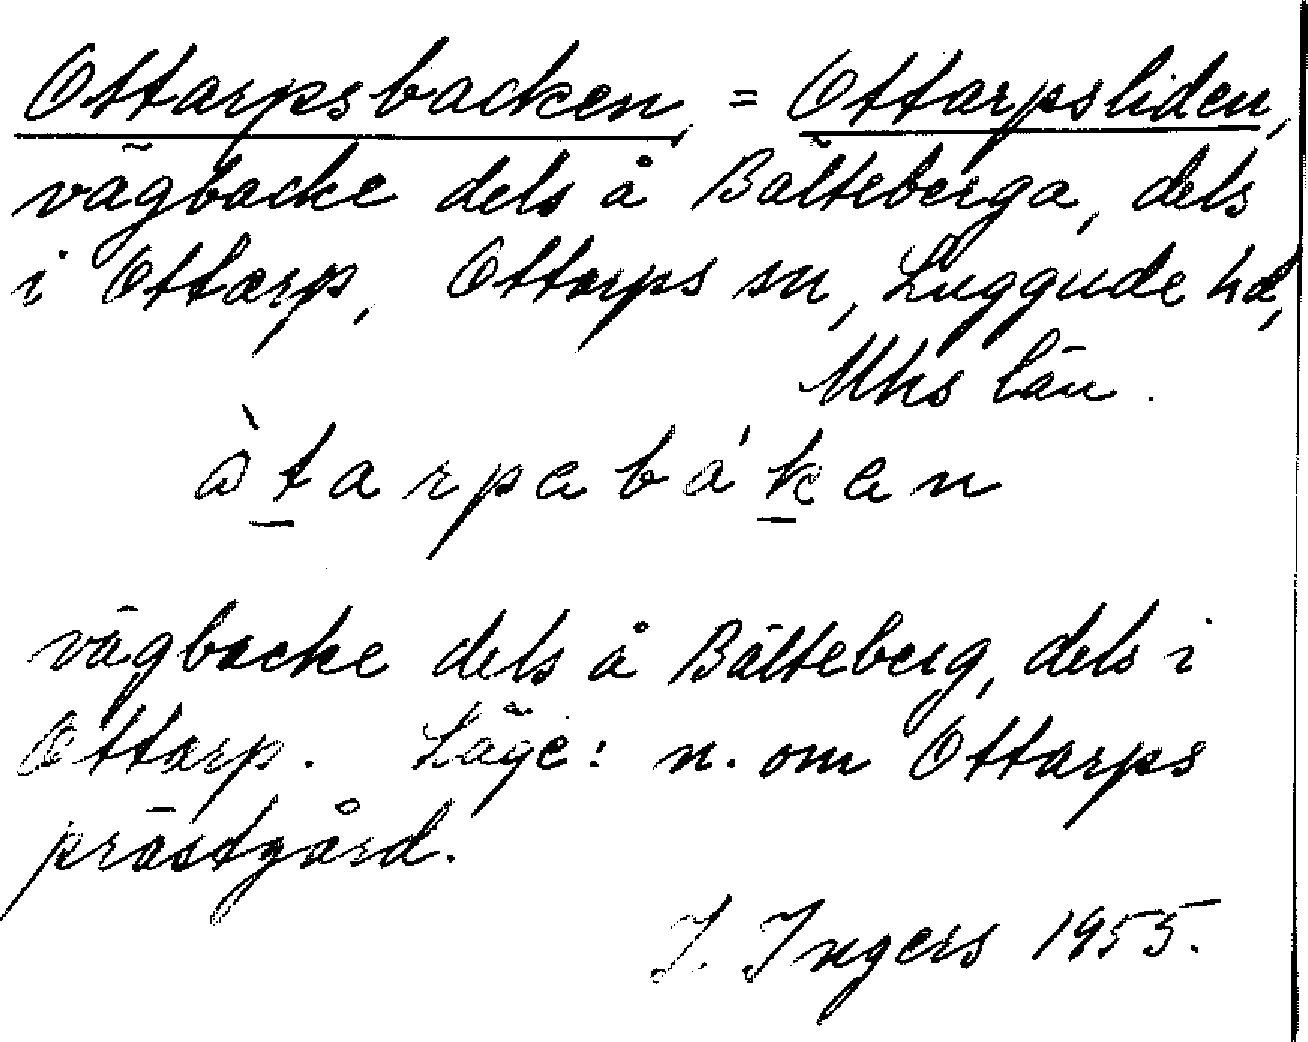 Ottarpsbacken, = Ottarpsliden,
vägbacke dels å Bälteberga, dels
i Ottarp, Ottarps sn, Luggude hd,
Mhs län.
òtarpabákan
vägbacke dels å Bälteberg, dels i
Ottarp. Läge: n. om Ottarps
prästgård.
I. Ingers 1955.